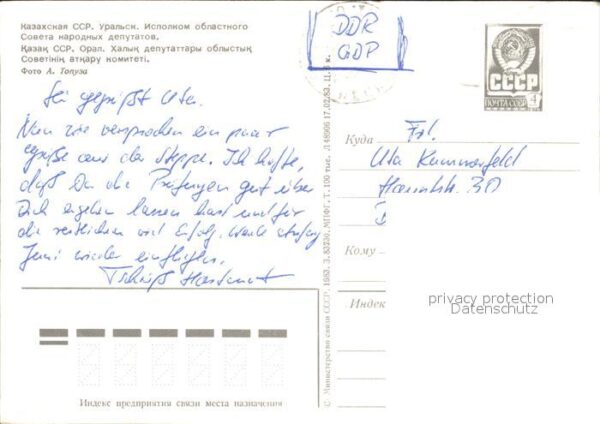 Казахская ССР. Уральск. Исполком областного
Совета народных депутатов.
Қазақ ССР. Орал. Халық депутаттары облыстық
Советінің атқару комитеті.
Фото А. Топуза
DDR
GDP
СССР
ПОЧТА СССР 4
Sei gegrüßt Uta.
Nun wie versprochen ein paar
Grüße aus der Steppe. Ich hoffe,
daß Du die Prüfungen gut über
Dich ergehen lassen hast und für
die restlichen viel Erfolg. Werde Anfang
Juni wieder einfliegen.
Tschüß Hartmut
Куда Frl.
Uta Kummerfeld
30
D
Кому
Индекс
privacy protection
Datenschutz
© Министерство связи СССР. 1983. З. 83230. МПФГ. Т. 100 тыс. Д 48966 17.02.83. 11.
Индекс предприятия связи места назначения